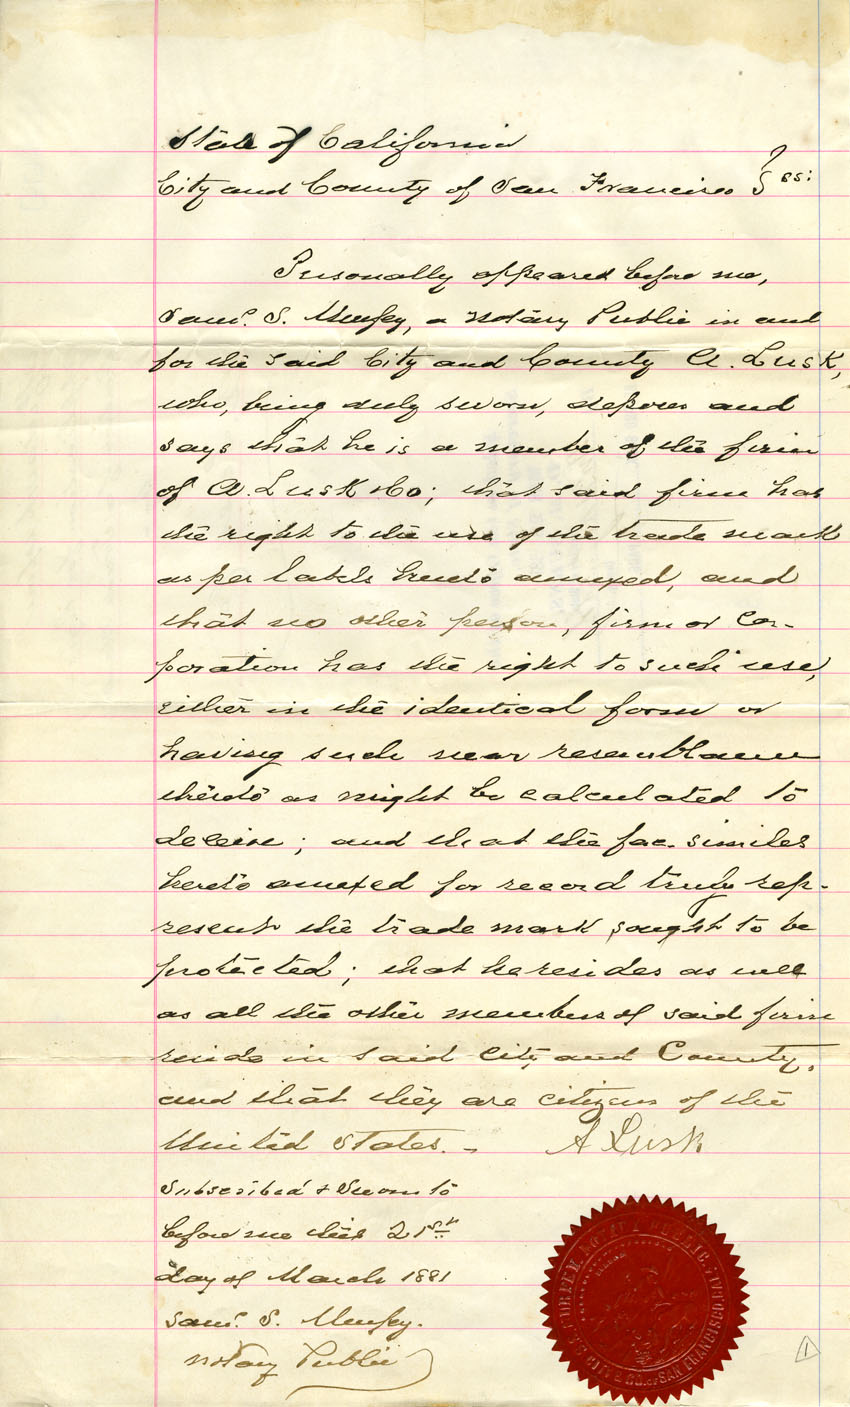 State of California
City and County of San Francisco } ss:
Personally appeared before me,
Saml. S. Murfey, a Notary Public in and
for the said City and County A. Lusk,
who, being duly sworn, deposes and
says that he is a member of the firm
of A. Lusk & Co; that said firm has
the right to the use of the trade mark
as per labels hereto annexed, and
that no other person, firm or Cor-
poration has the right to such use,
either in the identical form or
having such near resemblance
thereto as might be calculated to
deceive; and that the fac-similes
hereto annexed for record truly rep-
resent the trade mark sought to be
protected; that he resides as well
as all the other members of said firm
reside in said City and County,
and that they are citizens of the
United States. - A Lusk
Subscribed & Sworn to
before me this 21st
day of March 1881
Saml. S. Murfey.
Notary Public
NOTARY PUBLIC
CITY & CO. OF SAN FRANCISCO, CAL.
1